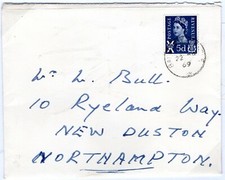 POSTAGE
REVENUE
5d
22
69
Mr L. Bull.
10 Ryeland Way.
NEW DUSTON
NORTHAMPTON.